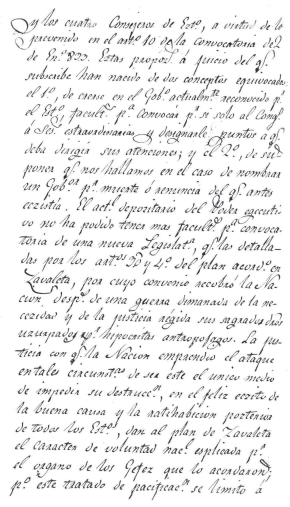 y los cuatro Consejeros de Est.º, a virtud de lo
prevenido en el art.º 10 de la convocatoria de 2
de En.º 833. Estas propos.s á juicio del q.e
subscribe han nacido de dos conceptos equivocados
el 1.º, de creerse en el Gob.º actualm.te reconocido p.r
el Est.º facult.s p.a convocar p.r si solo al Cong.o
á Ses.s extraordinarias y designarle puntos a q.e
deba dirigir sus atenciones; y el 2.º, de su-
poner q.e nos hallamos en el caso de nombrar
un Gob.or p.r muerte ó renuncia del q.e antes
ecsistía. El act.l depositario del Poder egecuti-
vo no ha podido tener mas facult.s p.a convoca-
toria de una nueva Legislat.a, q.e las detalla-
das por los art.os 3º y 4.º del plan acord.o en
Zavaleta, por cuyo convenio recobró la Na-
cion, desp.s de una guerra dimanada de la ne-
cesidad y de la justicia regida sus sagrados dros
usurpados p.r hipocritas antropofagos. La jus-
ticia con q.e la Nacion emprendió el ataque
en tales circunst.s de ser este el unico medio
de impedir su destrucc.n, en el feliz ecsito de
la buena causa y la ratihabicion posterior
de todos los Est.s, dan al plan de Zavaleta
el caracter de voluntad nac.l esplicada p.r
el organo de los Gefes que lo acordaron;
p.o este tratado de pacificac.n se limitó á